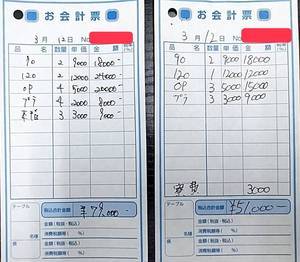 お会計票
3月12日 No.
品名 数量 単価 金額
90 2 9000 18000-
120 2 12000 24000
OP 4 5000 20000-
4 2000 8000-
3 3000 9000-
テーブル 税込合計金額 ¥79,000-
金額(税抜・税込)
消費税額等( %)
係 金額(税抜・税込)
名 消費税額等( %)
お会計票
3月12日 No.
品名 数量 単価 金額
90 2 9000 18000
120 1 12000 12000
OP 3 5000 15000
3 3000 9000
3000
テーブル 税込合計金額 ¥51,000-
金額(税抜・税込)
消費税額等( %)
係 金額(税抜・税込)
名 消費税額等( %)